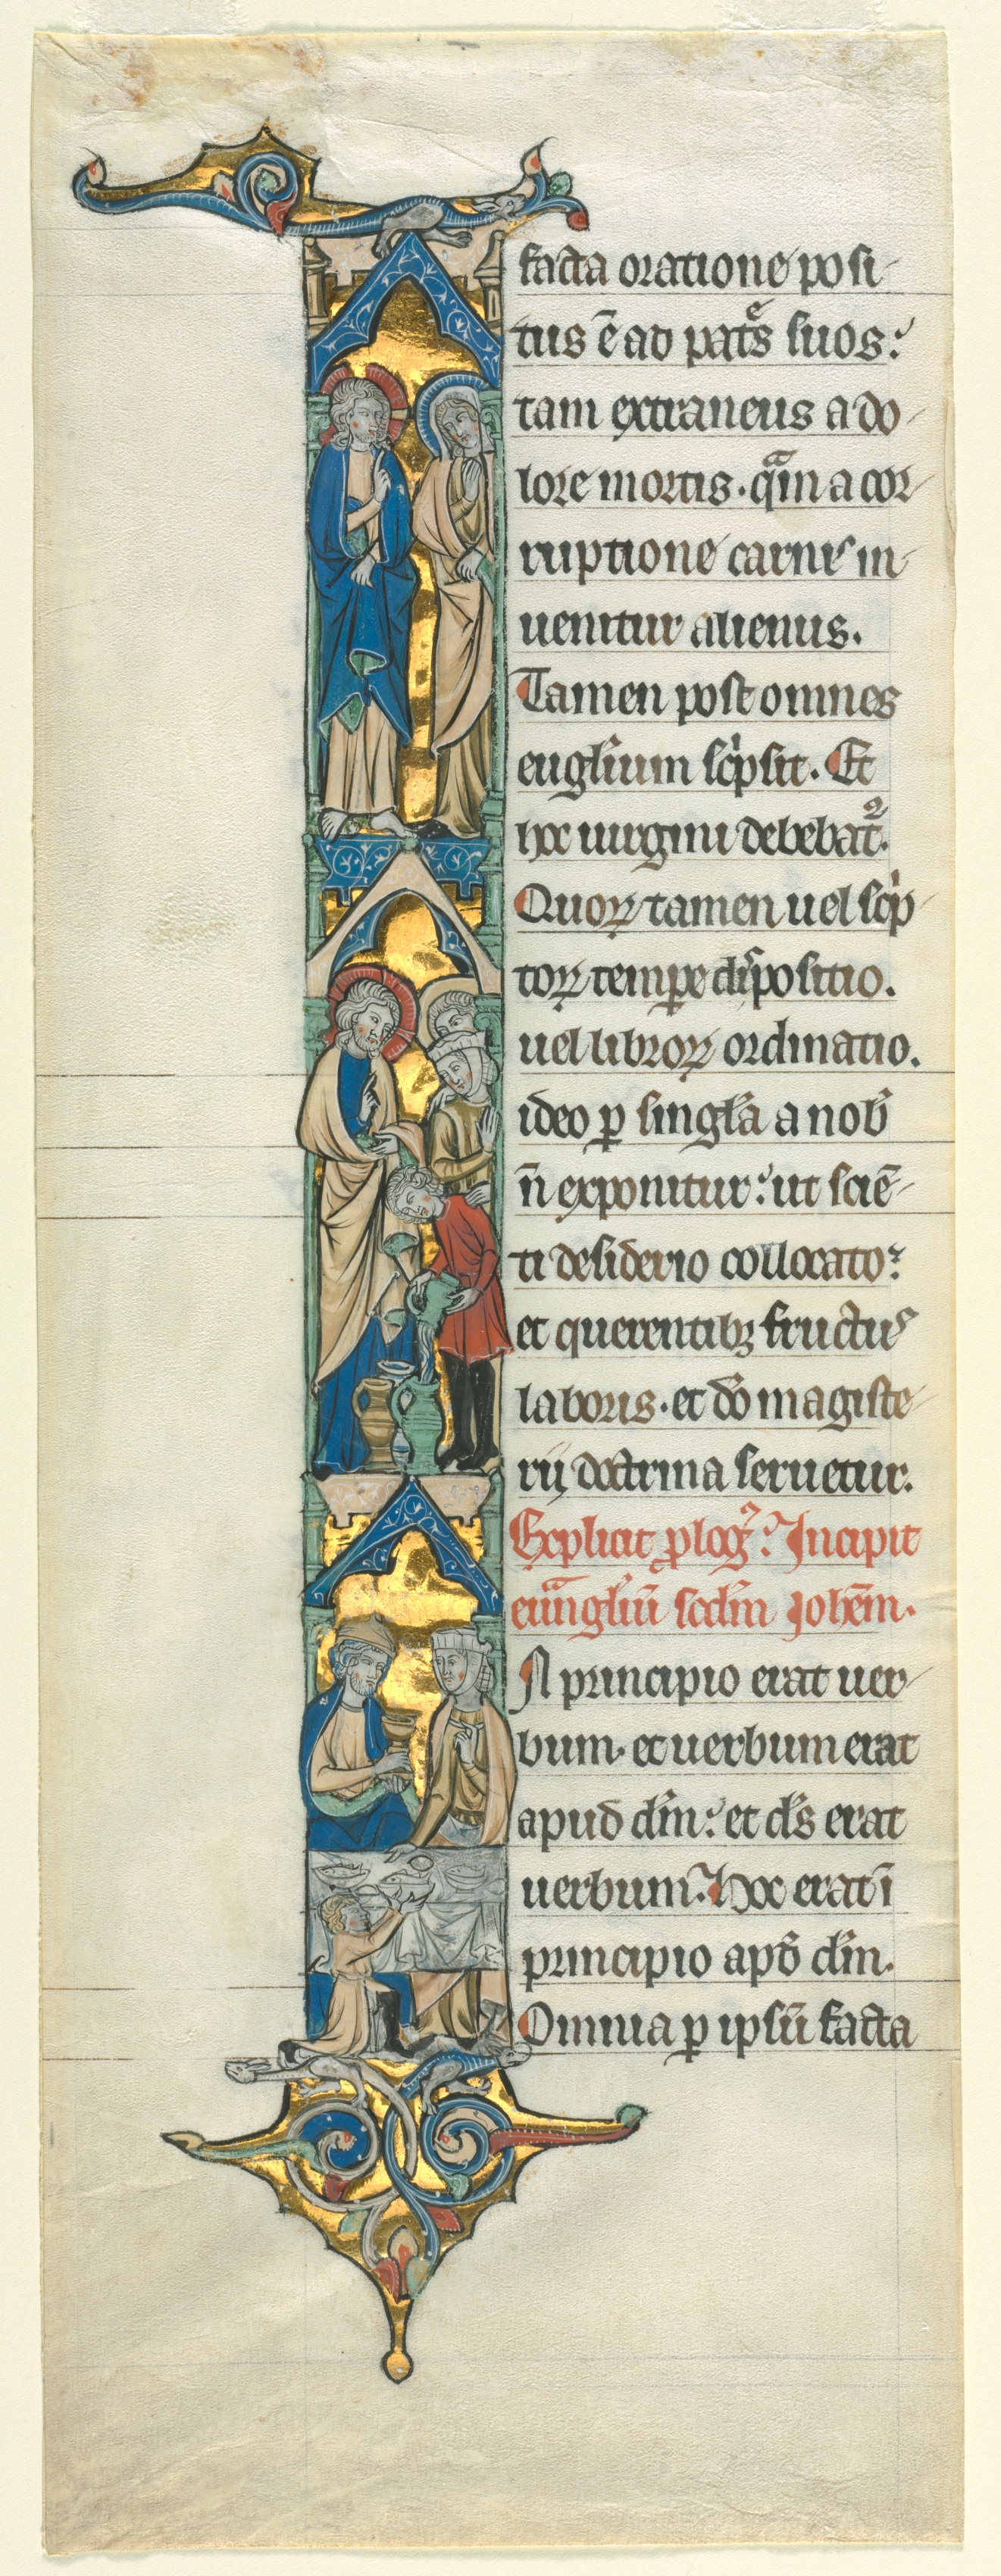 facta oratione posi-
tus ē ad patͤs suos:
tam extraneus a do-
lore mortis. qᵃm a cor-
ruptione carnis in-
uenitur alienus.
Tamen post omnes
euglium scͥpsit. Et
hoc uirgini debebat᷑.
Quoꝝ tamen uel scͥp-
toꝝ tempore dispositio.
uel libroꝝ ordinatio.
ideo ꝑ singła a nob̄
n̄ exponitur: ut sciē-
ti desiderio collocato:
et querentibꝫ fructus
laboris. et dō magiste-
rij doctrina seruetur.
Explicit ꝓlog᷒. Incipit
euāngliū scdm Johēm.
In principio erat uer-
bum. et uerbum erat
apud dm̄: et ds̄ erat
uerbum. hoc erat ī
principio apd̄ dm̄.
Omnia ꝑ ipsū facta